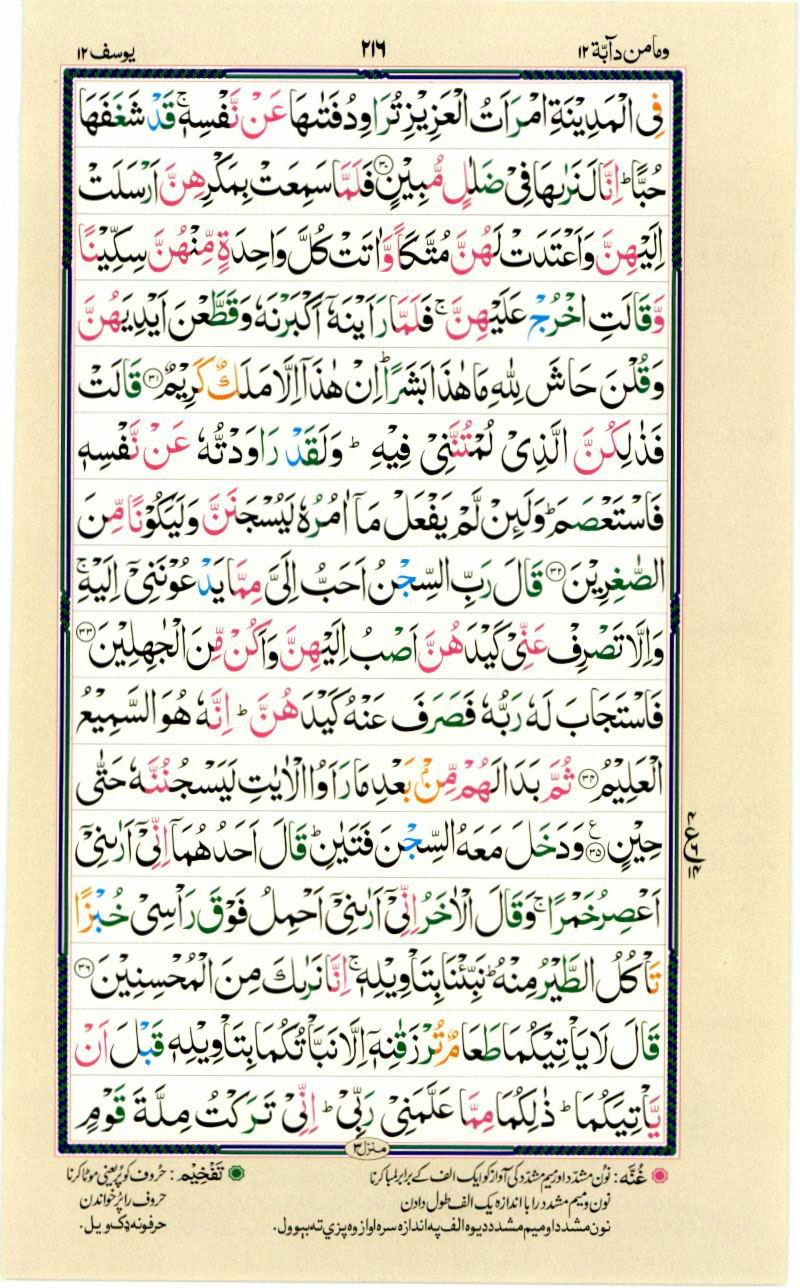 وما من دآبة ١٢
٢١٦
یوسف ١٢
فِی الْمَدِیْنَةِ امْرَاَتُ الْعَزِیْزِ تُرَاوِدُ فَتٰىهَا عَنْ نَّفْسِهٖ ۚ قَدْ شَغَفَهَا
حُبًّا ؕ اِنَّا لَنَرٰىهَا فِیْ ضَلٰلٍ مُّبِیْنٍ ﴿۳۰﴾ فَلَمَّا سَمِعَتْ بِمَكْرِهِنَّ اَرْسَلَتْ
اِلَیْهِنَّ وَاَعْتَدَتْ لَهُنَّ مُتَّكَاً وَّاٰتَتْ كُلَّ وَاحِدَةٍ مِّنْهُنَّ سِكِّیْنًا
وَّقَالَتِ اخْرُجْ عَلَیْهِنَّ ۚ فَلَمَّا رَاَیْنَهٗۤ اَكْبَرْنَهٗ وَقَطَّعْنَ اَیْدِیَهُنَّ
وَقُلْنَ حَاشَ لِلّٰهِ مَا هٰذَا بَشَرًا ؕ اِنْ هٰذَاۤ اِلَّا مَلَكٌ كَرِیْمٌ ﴿۳۱﴾ قَالَتْ
فَذٰلِكُنَّ الَّذِیْ لُمْتُنَّنِیْ فِیْهِ ؕ وَلَقَدْ رَاوَدْتُّهٗ عَنْ نَّفْسِهٖ
فَاسْتَعْصَمَ ؕ وَلَئِنْ لَّمْ یَفْعَلْ مَاۤ اٰمُرُهٗ لَیُسْجَنَنَّ وَلَیَكُوْنًا مِّنَ
الصّٰغِرِیْنَ ﴿۳۲﴾ قَالَ رَبِّ السِّجْنُ اَحَبُّ اِلَیَّ مِمَّا یَدْعُوْنَنِیْۤ اِلَیْهِ ۚ
وَاِلَّا تَصْرِفْ عَنِّیْ كَیْدَهُنَّ اَصْبُ اِلَیْهِنَّ وَاَكُنْ مِّنَ الْجٰهِلِیْنَ ﴿۳۳﴾
فَاسْتَجَابَ لَهٗ رَبُّهٗ فَصَرَفَ عَنْهُ كَیْدَهُنَّ ؕ اِنَّهٗ هُوَ السَّمِیْعُ
الْعَلِیْمُ ﴿۳۴﴾ ثُمَّ بَدَا لَهُمْ مِّنْۢ بَعْدِ مَا رَاَوُا الْاٰیٰتِ لَیَسْجُنُنَّهٗ حَتّٰی
حِیْنٍ ﴿۳۵﴾ ع وَدَخَلَ مَعَهُ السِّجْنَ فَتَیٰنِ ؕ قَالَ اَحَدُهُمَاۤ اِنِّیْۤ اَرٰىنِیْۤ
اَعْصِرُ خَمْرًا ۚ وَقَالَ الْاٰخَرُ اِنِّیْۤ اَرٰىنِیْۤ اَحْمِلُ فَوْقَ رَاْسِیْ خُبْزًا
تَاْكُلُ الطَّیْرُ مِنْهُ ؕ نَبِّئْنَا بِتَاْوِیْلِهٖ ۚ اِنَّا نَرٰىكَ مِنَ الْمُحْسِنِیْنَ ﴿۳۶﴾
قَالَ لَا یَاْتِیْكُمَا طَعَامٌ تُرْزَقٰنِهٖۤ اِلَّا نَبَّاْتُكُمَا بِتَاْوِیْلِهٖ قَبْلَ اَنْ
یَّاْتِیَكُمَا ؕ ذٰلِكُمَا مِمَّا عَلَّمَنِیْ رَبِّیْ ؕ اِنِّیْ تَرَكْتُ مِلَّةَ قَوْمٍ
منزل ٣
غُنَّه: نوُن مشدّد اور میم مشدّد کی آواز کو ایک الف کے برابر لمبا کرنا
تَفْخِیْم: حرُوف کو پُر یعنی موٹا کرنا
نون و میم مشدد را با اندازه یک الف طول دادن
حروف را پُر خواندن
نون مشدد او میم مشدد د یوه الف په اندازه سره اواز وه پزي ته بېوول.
حرفونه ډک ویل.